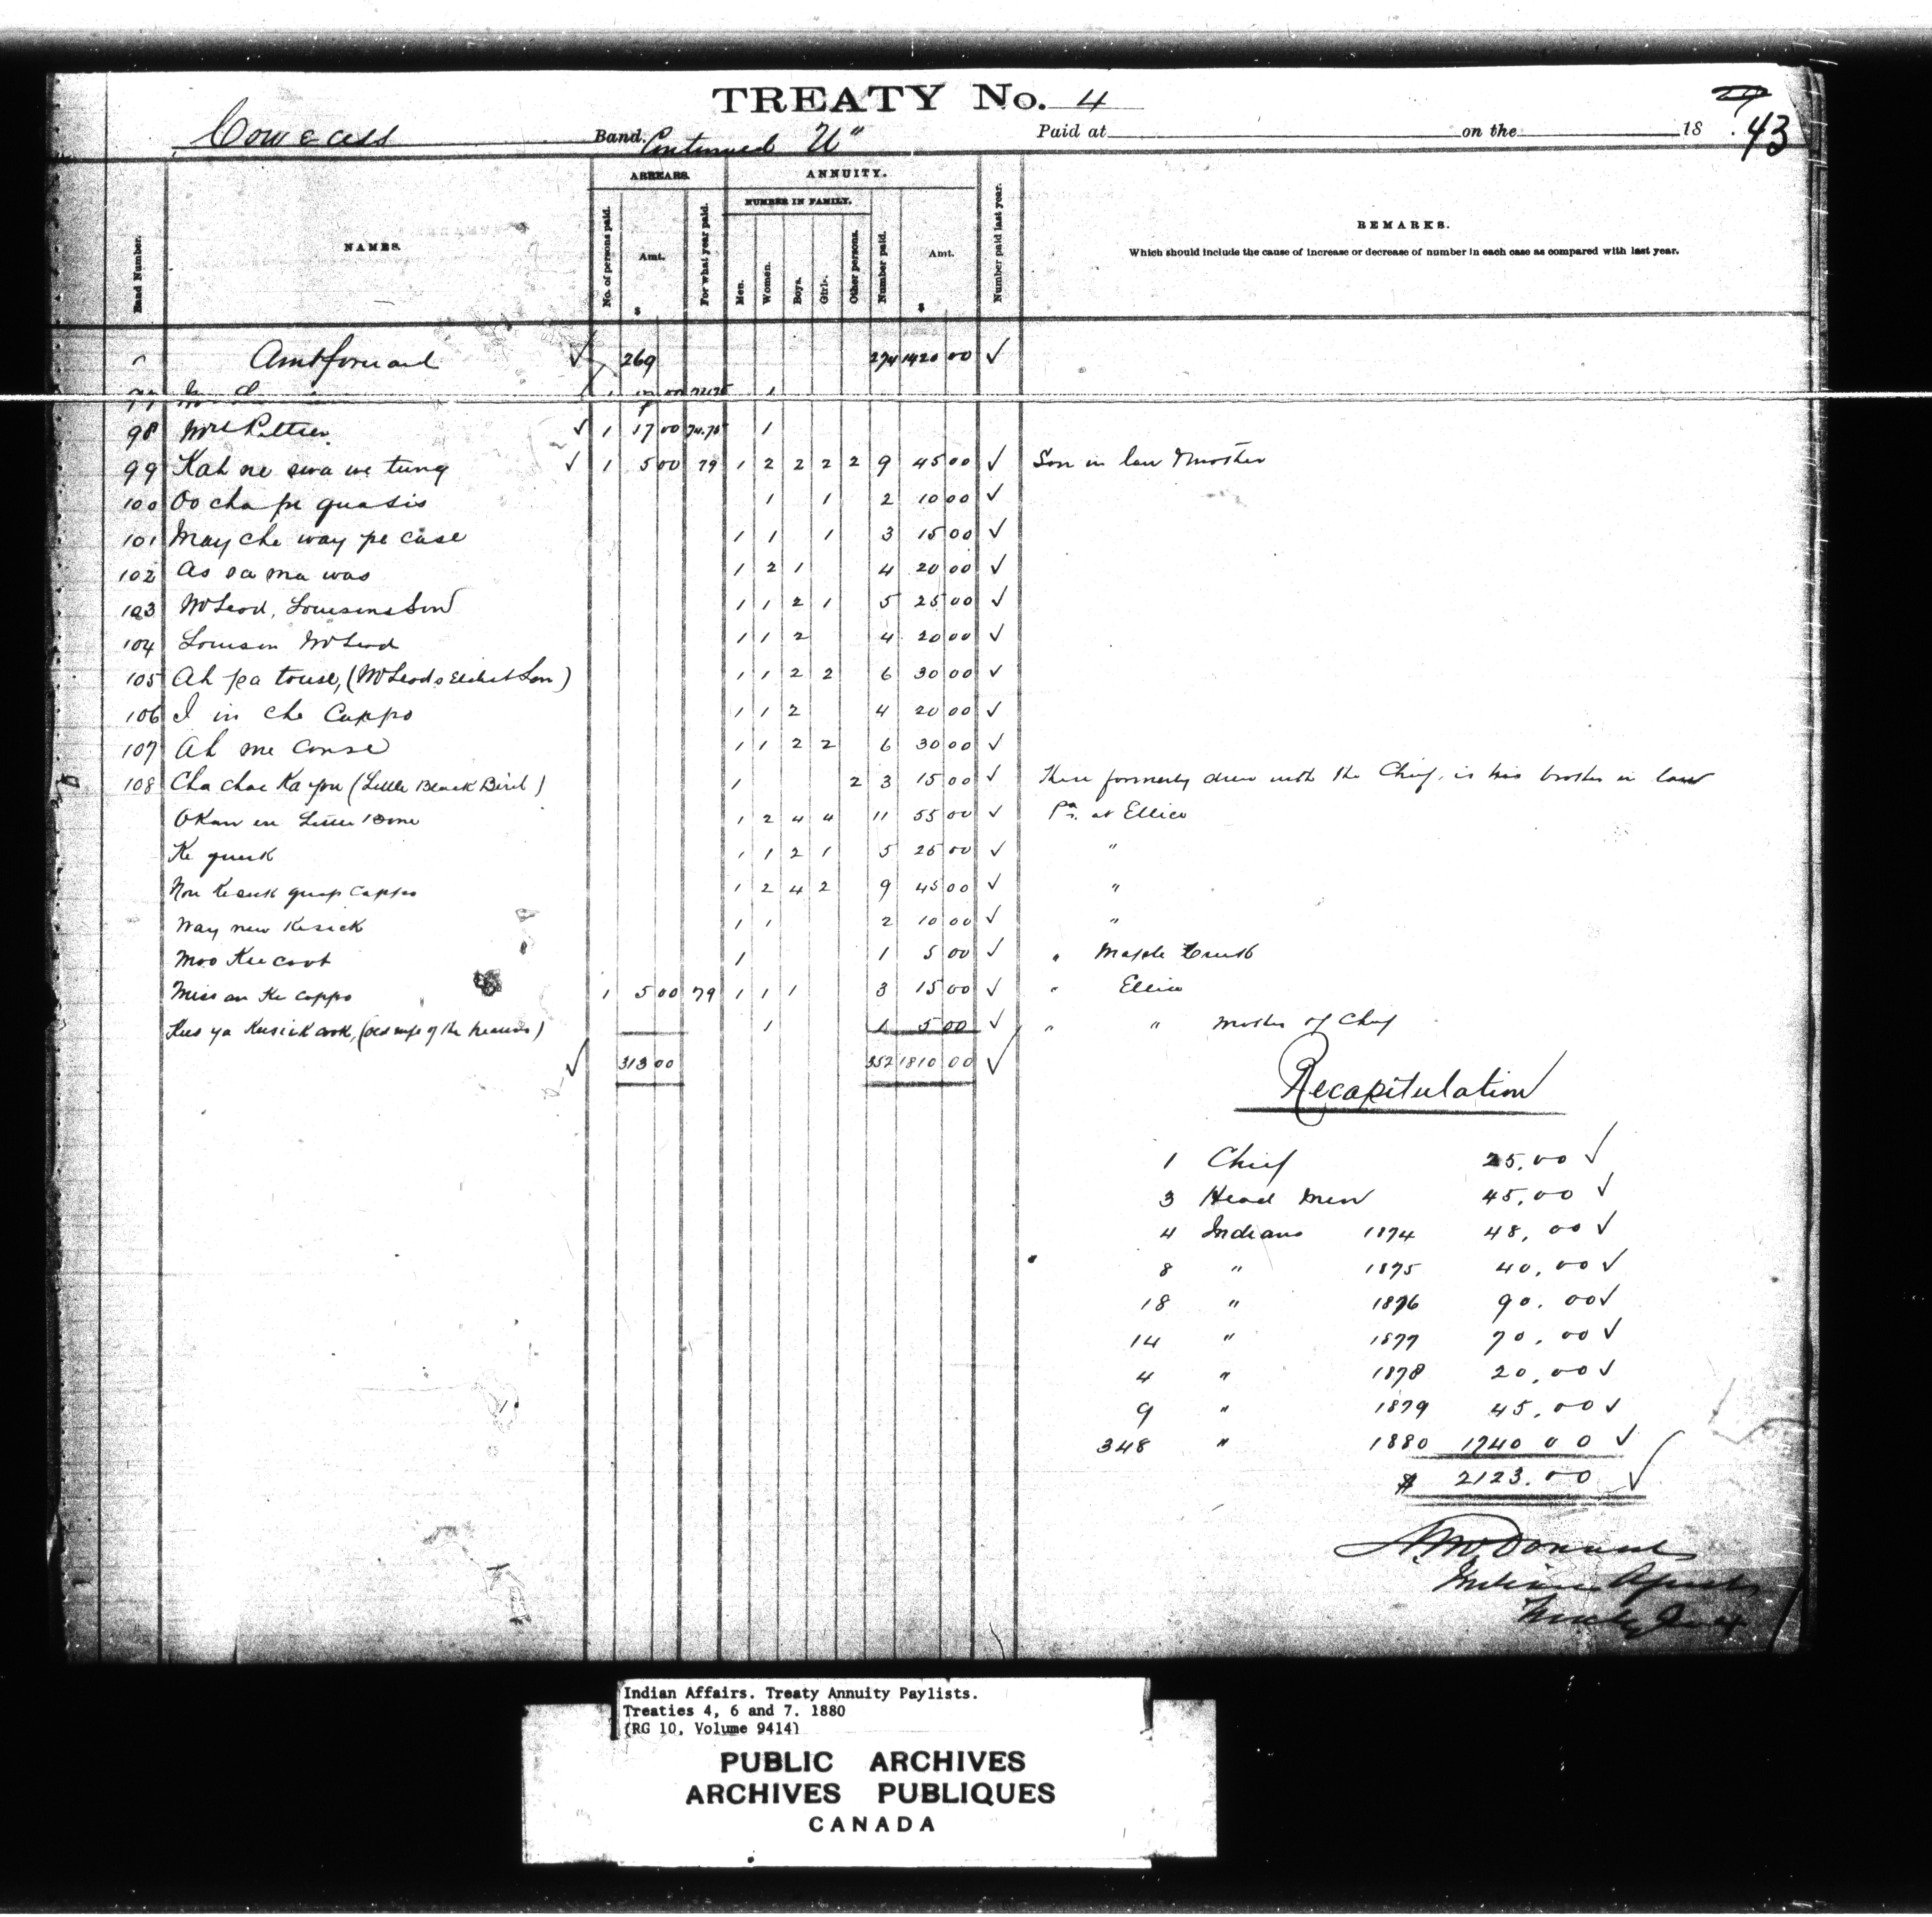 TREATY No. 4
43
Cowecess Band. Continued "U" Paid at on the 18
ARREARS. ANNUITY.
NUMBER IN FAMILY.
Band Number. NAMES. No. of persons paid. Amt. $ For what year paid. Men. Women. Boys. Girls. Other persons. Number paid. Amt. $ Number paid last year. REMARKS.
Which should include the cause of increase or decrease of number in each case as compared with last year.
Amt forward ✓ 269 274 1420 00 ✓
98 Mrs Peltier ✓ 1 17 00 74.75 1
99 Kah ne swa we tung ✓ 1 5 00 79 1 2 2 2 2 9 45 00 ✓ Son in law & mother
100 Oo cha pe quasis 1 1 2 10 00 ✓
101 May che way pe case 1 1 1 3 15 00 ✓
102 As sa ma was 1 2 1 4 20 00 ✓
103 McLeod, Louisons Son 1 1 2 1 5 25 00 ✓
104 Louison McLeod 1 1 2 4 20 00 ✓
105 Ah pa touse, (McLeods Eldest Son) 1 1 2 2 6 30 00 ✓
106 I in che Cappo 1 1 2 4 20 00 ✓
107 Ah me conse 1 1 2 2 6 30 00 ✓
108 Cha chac Ka you (Little Black Bird) 1 2 3 15 00 ✓ These formerly drew with the Chief, is his brother in law
Okan en Little Bone 1 2 4 4 11 55 00 ✓ Pd. at Ellice
Ke quesk 1 1 2 1 5 25 00 ✓ "
Non Kesuk quap Cappo 1 2 4 2 9 45 00 ✓ "
Way new Kesick 1 1 2 10 00 ✓ "
Moo Kee coot 1 1 5 00 ✓ " Maple Creek
Miss an Ke cappo 1 5 00 79 1 1 1 3 15 00 ✓ " Ellice
Kees ya Keesick ook, (Old wife of the heavens) 1 1 5 00 ✓ " " Mother of Chief
✓ 313 00 352 1810 00 ✓
Recapitulation
1 Chief 25.00 ✓
3 Head Men 45.00 ✓
4 Indians 1874 48.00 ✓
8 " 1875 40.00 ✓
18 " 1876 90.00 ✓
14 " 1877 70.00 ✓
4 " 1878 20.00 ✓
9 " 1879 45.00 ✓
348 " 1880 1740 00 ✓
$ 2123.00 ✓
A. McDonald
Indian Agent
Indian Affairs. Treaty Annuity Paylists.
Treaties 4, 6 and 7. 1880
(RG 10, Volume 9414)
PUBLIC ARCHIVES
ARCHIVES PUBLIQUES
CANADA